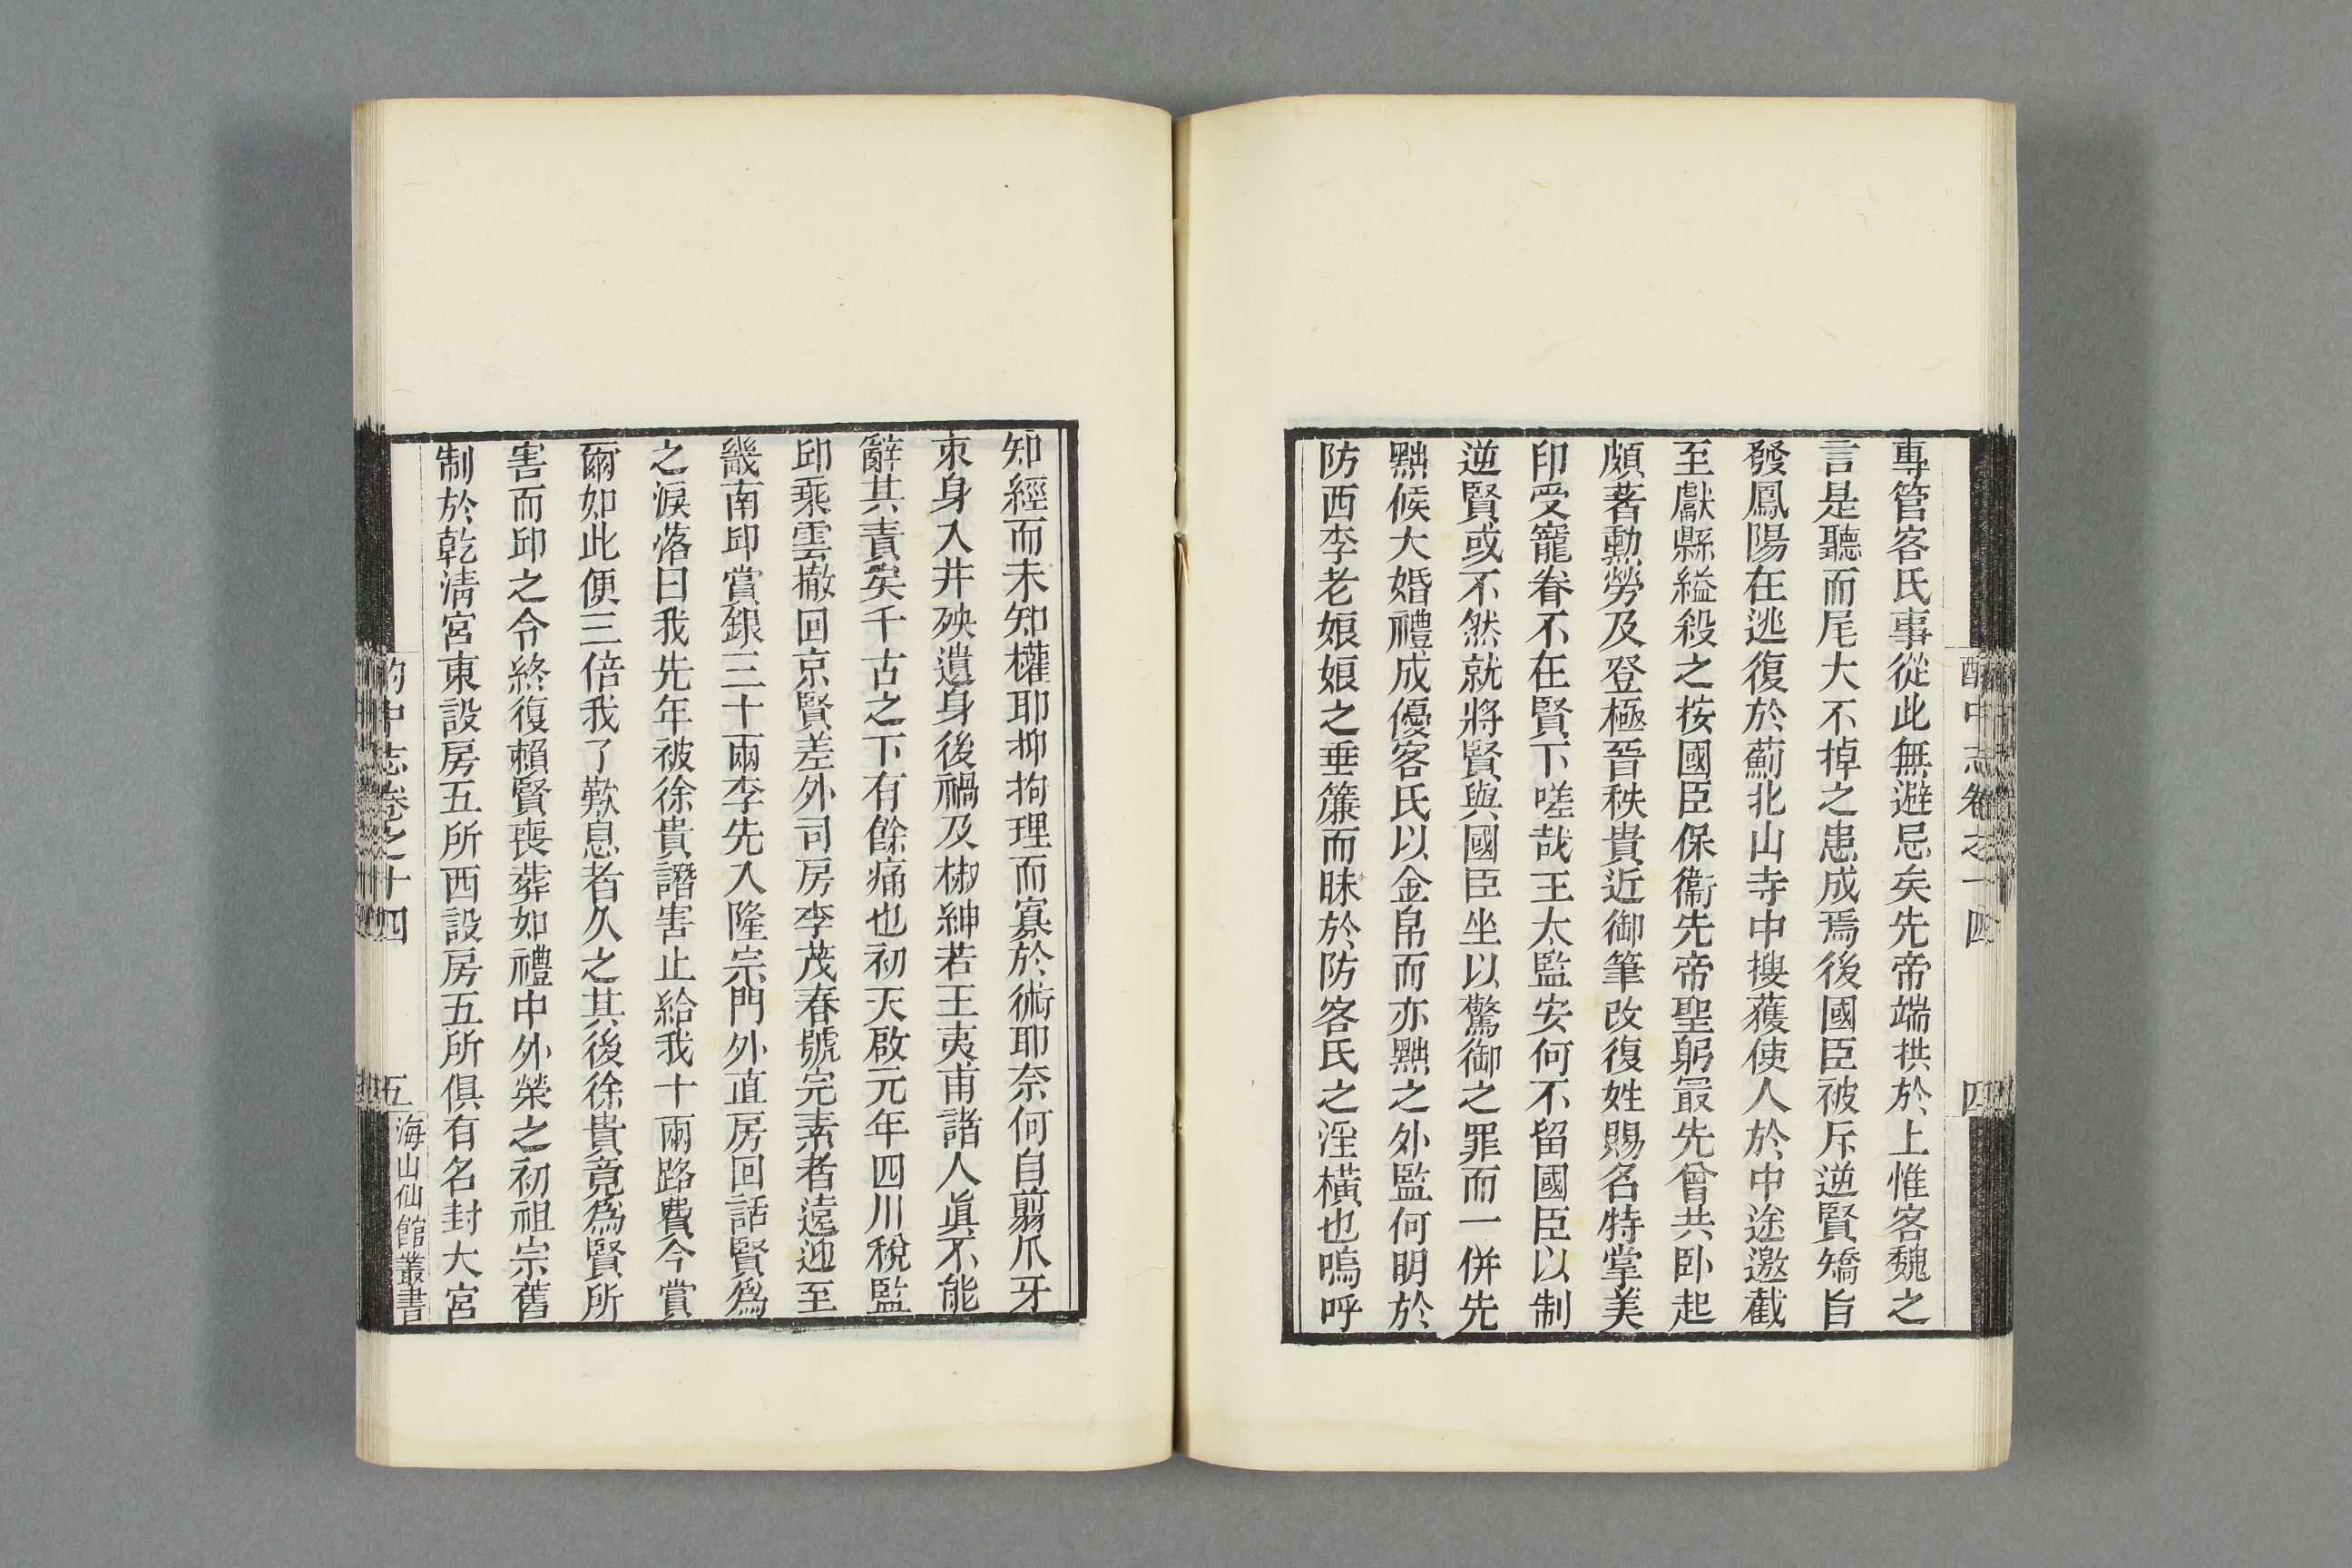 酌中志卷之十四
四
專管客氏事從此無避忌矣先帝端拱於上惟客魏之
言是聽而尾大不掉之患成焉後國臣被斥逆賢矯旨
發鳳陽在逃復於薊北山寺中搜獲使人於中途邀截
至獻縣縊殺之按國臣保衞先帝聖躬最先曾共卧起
頗著勲勞及登極晉秩貴近御筆改復姓賜名特掌美
印受寵眷不在賢下嗟哉王太監安何不留國臣以制
逆賢或不然就將賢與國臣坐以驚御之罪而一併先
黜候大婚禮成優客氏以金帛而亦黜之外監何明於
防西李老娘娘之垂簾而昧於防客氏之淫橫也嗚呼
知經而未知權耶抑拘理而寡於術耶奈何自翦爪牙
束身入井殃遺身後禍及椒紳若王夷甫諸人眞不能
辭其責矣千古之下有餘痛也初天啟元年四川稅監
邱乘雲撤回京賢差外司房李茂春號完素者遠迎至
畿南邱賞銀三十兩李先入隆宗門外直房回話賢爲
之淚落曰我先年被徐貴譖害止給我十兩路費今賞
爾如此便三倍我了歎息者久之其後徐貴竟爲賢所
害而邱之令終復賴賢喪葬如禮中外榮之初祖宗舊
制於乾淸宮東設房五所西設房五所俱有名封大宮
酌中志卷之十四
五
海山仙館叢書